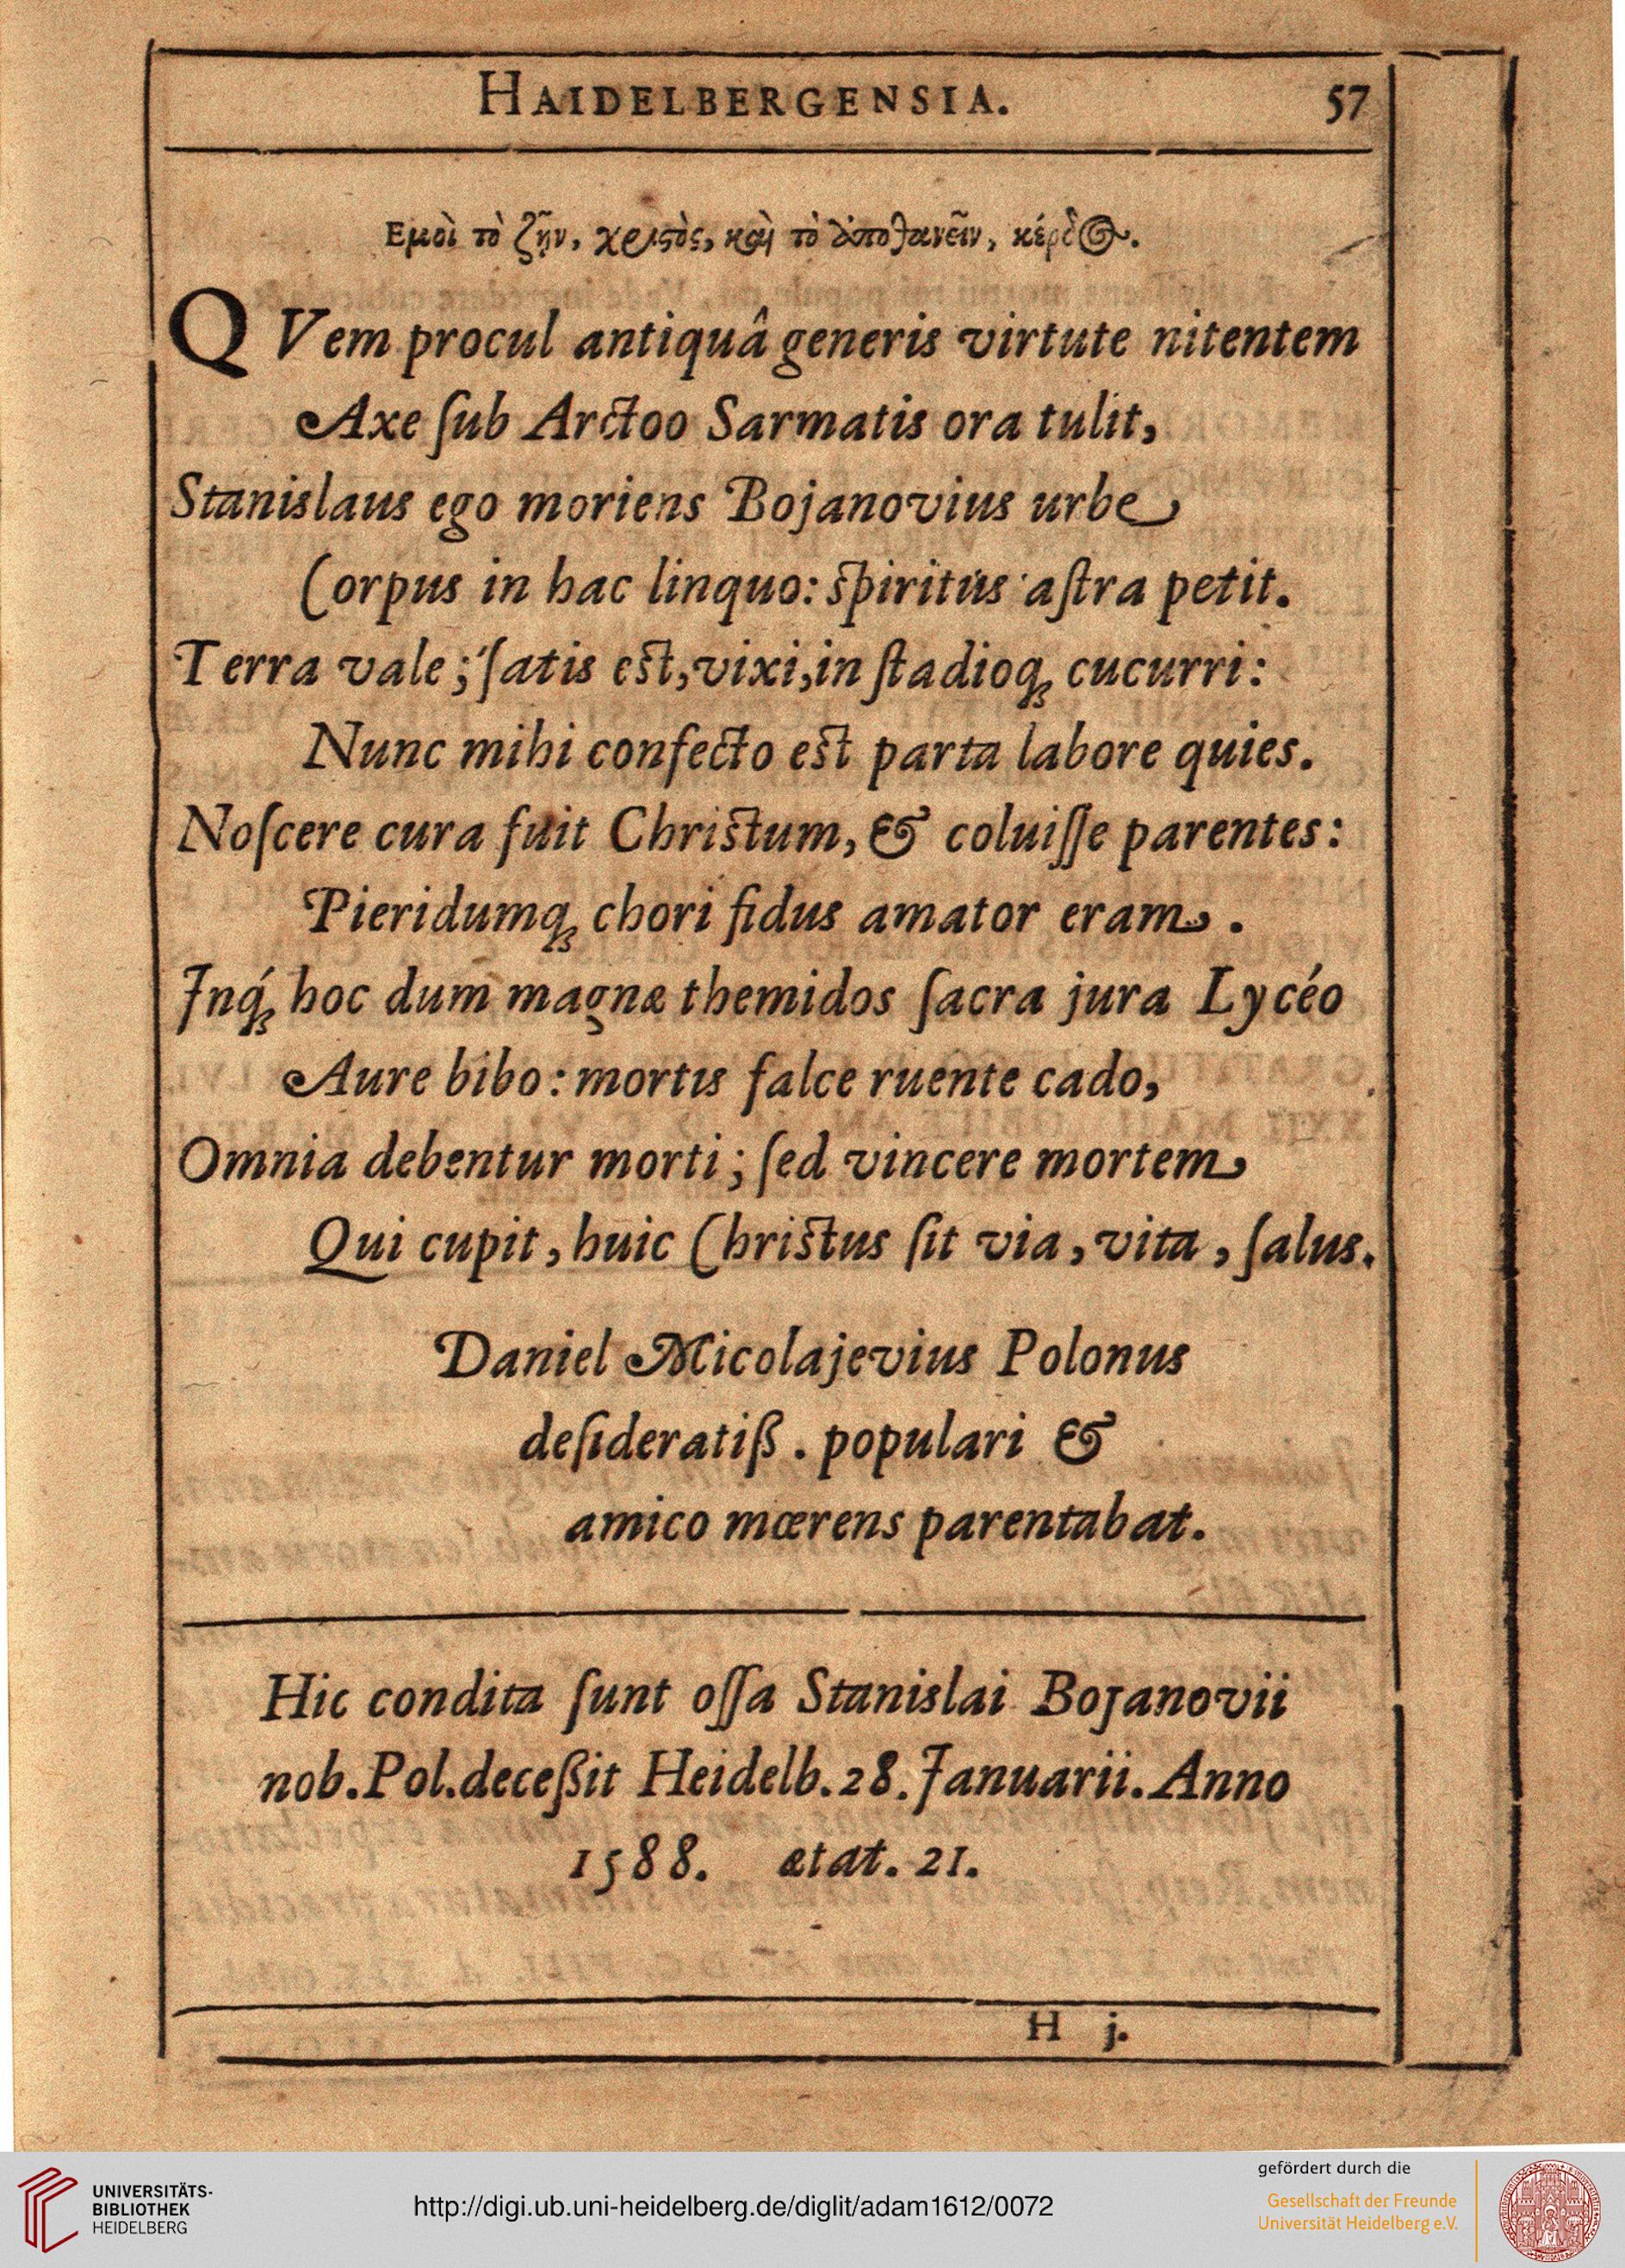 HAIDELBERGENSIA. 57
Εμοὶ τὸ ζῆν, χριστὸς, καὶ τὸ ἀποθανεῖν, κέρδος.
QVem procul antiquâ generis virtute nitentem
Axe ſub Arctoo Sarmatis ora tulit,
Stanislaus ego moriens Bojanovius urbe
Corpus in hac linquo: spiritus aſtra petit.
Terra vale; ſatis est, vixi, in ſtadioq́; cucurri:
Nunc mihi confecto est parta labore quies.
Noſcere cura fuit Christum, & coluiſſe parentes:
Pieridumq́; chori fidus amator eram.
Inq́; hoc dum magnæ themidos ſacra jura Lycéo
Aure bibo: mortis falce ruente cado,
Omnia debentur morti; ſed vincere mortem
Qui cupit, huic Christus ſit via, vita, ſalus.
Daniel Micolajevius Polonus
deſideratiß. populari &
amico mœrens parentabat.
Hic condita ſunt oſſa Stanislai Bojanovii
nob. Pol. deceßit Heidelb. 28. Januarii. Anno
1588. ætat. 21.
H j.
UNIVERSITÄTS-
BIBLIOTHEK
HEIDELBERG
http://digi.ub.uni-heidelberg.de/diglit/adam1612/0072
gefördert durch die
Gesellschaft der Freunde
Universität Heidelberg e.V.